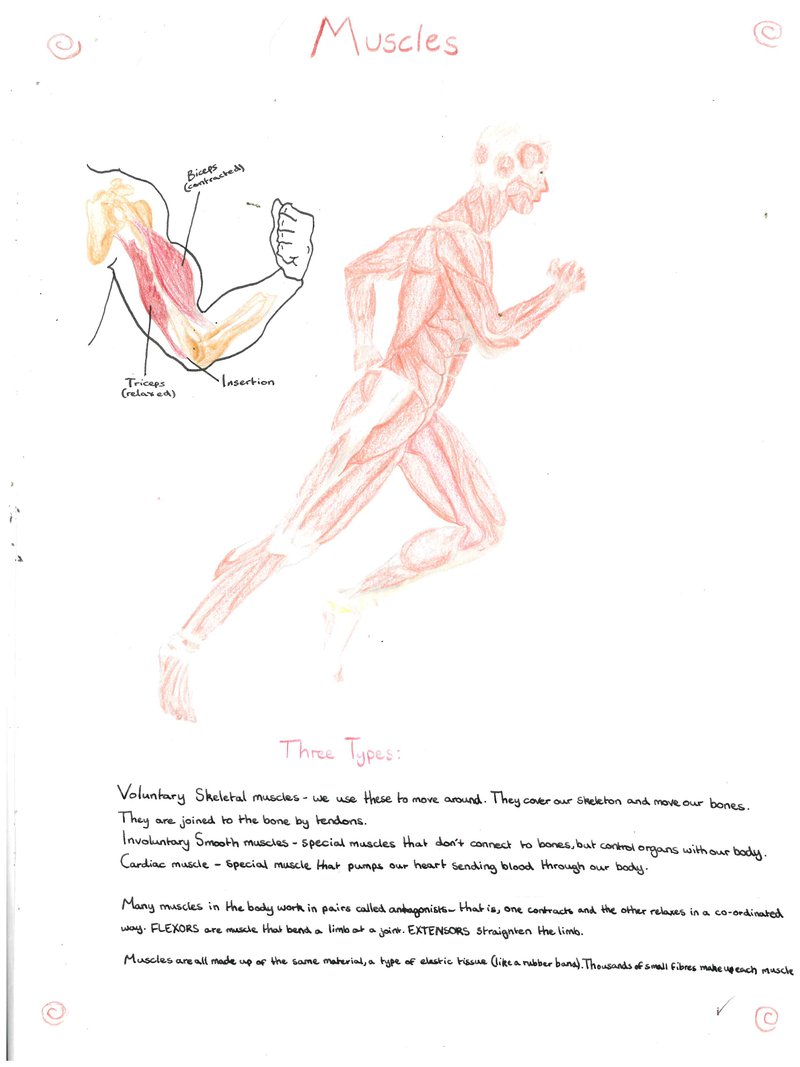 Muscles
Biceps
(contracted)
Triceps
(relaxed)
Insertion
Three Types:
Voluntary Skeletal muscles - we use these to move around. They cover our skeleton and move our bones.
They are joined to the bone by tendons.
Involuntary Smooth muscles - special muscles that don't connect to bones, but control organs with our body.
Cardiac muscle - special muscle that pumps our heart sending blood through our body.
Many muscles in the body work in pairs called antagonists - that is, one contracts and the other relaxes in a co-ordinated
way. FLEXORS are muscle that bend a limb at a joint. EXTENSORS straighten the limb.
Muscles are all made up of the same material, a type of elastic tissue (like a rubber band). Thousands of small fibres make up each muscle